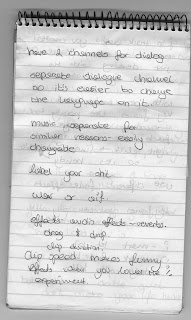 have 2 channels for dialog
separate dialogue channel
so it's easier to change
the language on it.
music separate for
similar reasons - easily
changable
label your shit
wav or aiff
effects - audio effects - reverbs.
drag & drop
clip duration
Clip speed makes funny
effects when you lower the %
experiment.